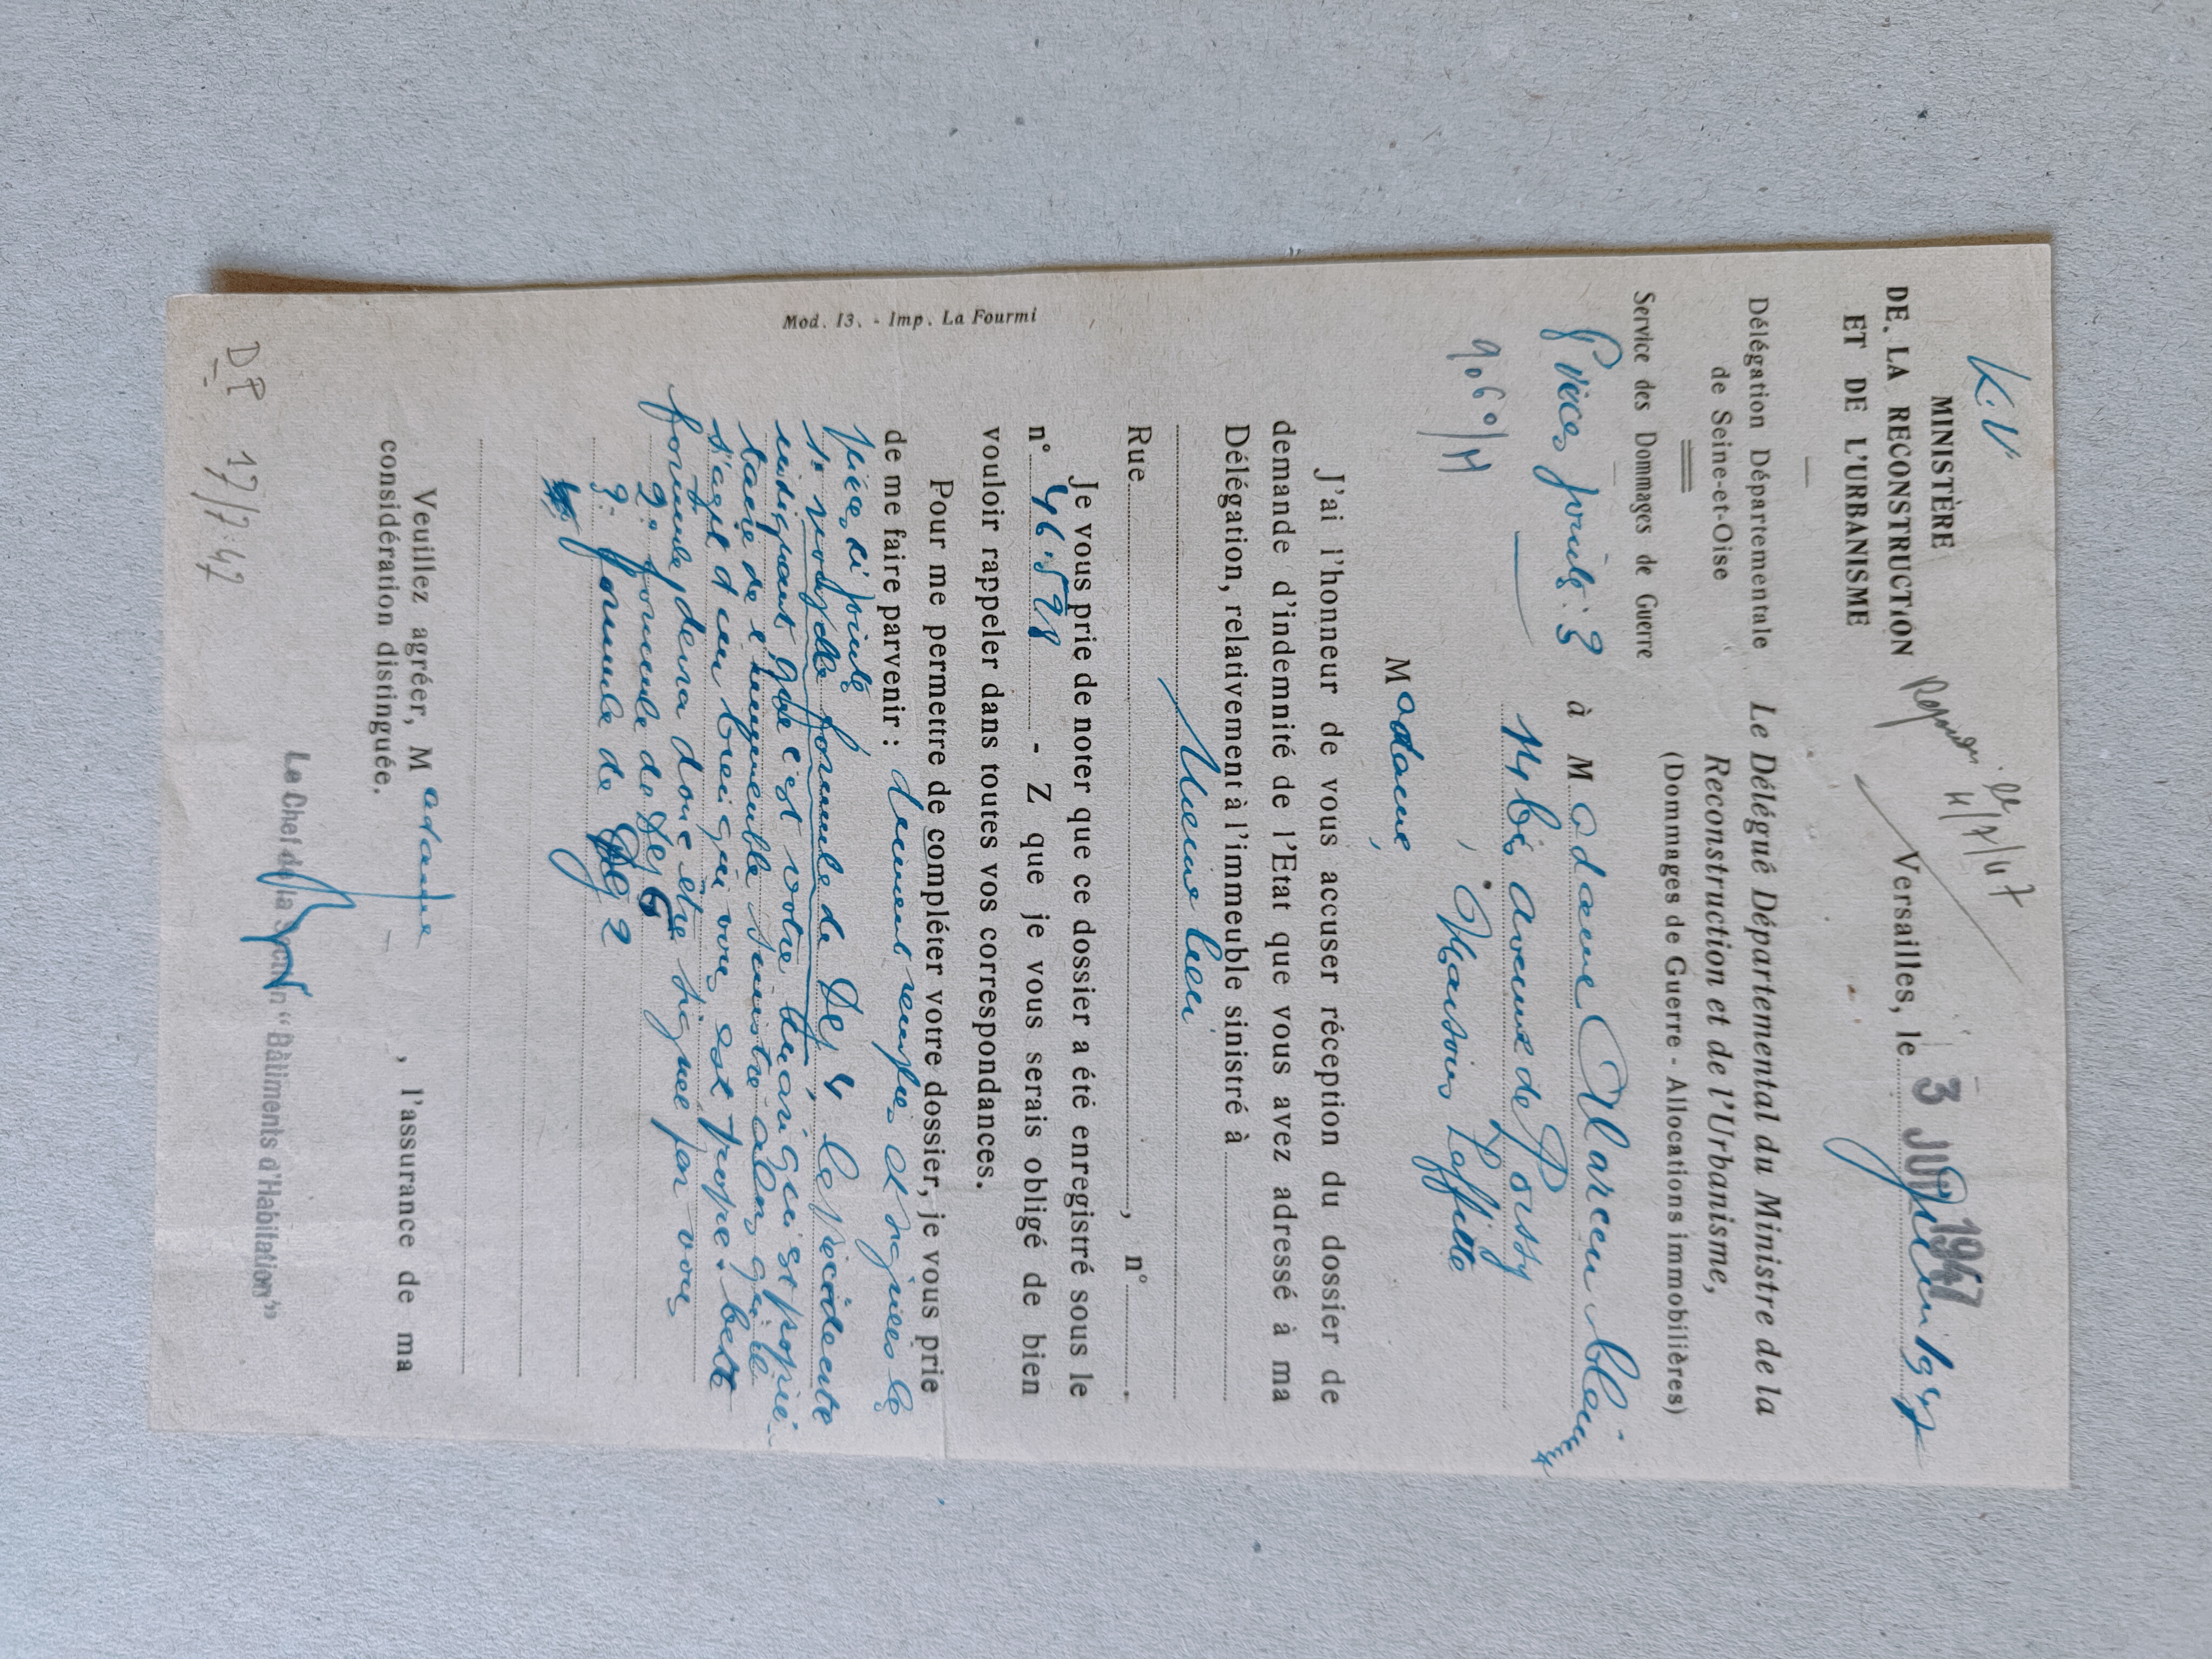 K.V
MINISTÈRE
DE LA RECONSTRUCTION
ET DE L'URBANISME
Délégation Départementale
de Seine-et-Oise
Service des Dommages de Guerre
Pièces jointes : 3
9060/H
le
4/7/47
Versailles, le 3 JUI 1947
Le Délégué Départemental du Ministre de la
Reconstruction et de l'Urbanisme,
(Dommages de Guerre - Allocations immobilières)
à Madame
14 bis avenue de Poissy
Maisons Laffitte
Madame,
J'ai l'honneur de vous accuser réception du dossier de
demande d'indemnité de l'Etat que vous avez adressé à ma
Délégation, relativement à l'immeuble sinistré à
même lieu
Rue , n° .
Je vous prie de noter que ce dossier a été enregistré sous le
n° 46.578 - Z que je vous serais obligé de bien
vouloir rappeler dans toutes vos correspondances.
Pour me permettre de compléter votre dossier, je vous prie
de me faire parvenir : dûment remplies et signées les
pièces ci jointes
1° nouvelle formule de Dej 4 la précédente
indiquant que c'est votre mari qui est proprié-
taire de l'immeuble sinistré alors qu'il
s'agit d'un bien qui vous est propre. Cette
formule devra donc être signée par vous
2° formule de Dej 6
3° formule de Dej 2
Veuillez agréer, Madame , l'assurance de ma
considération distinguée.
Le Chef de la Section "Bâtiments d'Habitation"
DP 17/7.47
Mod. 13. - Imp. La Fourmi